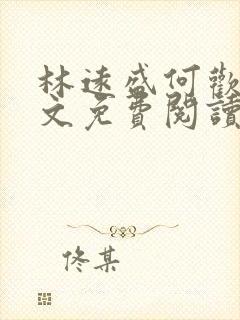 林逺盛何歡
文免費閱讀
佟某